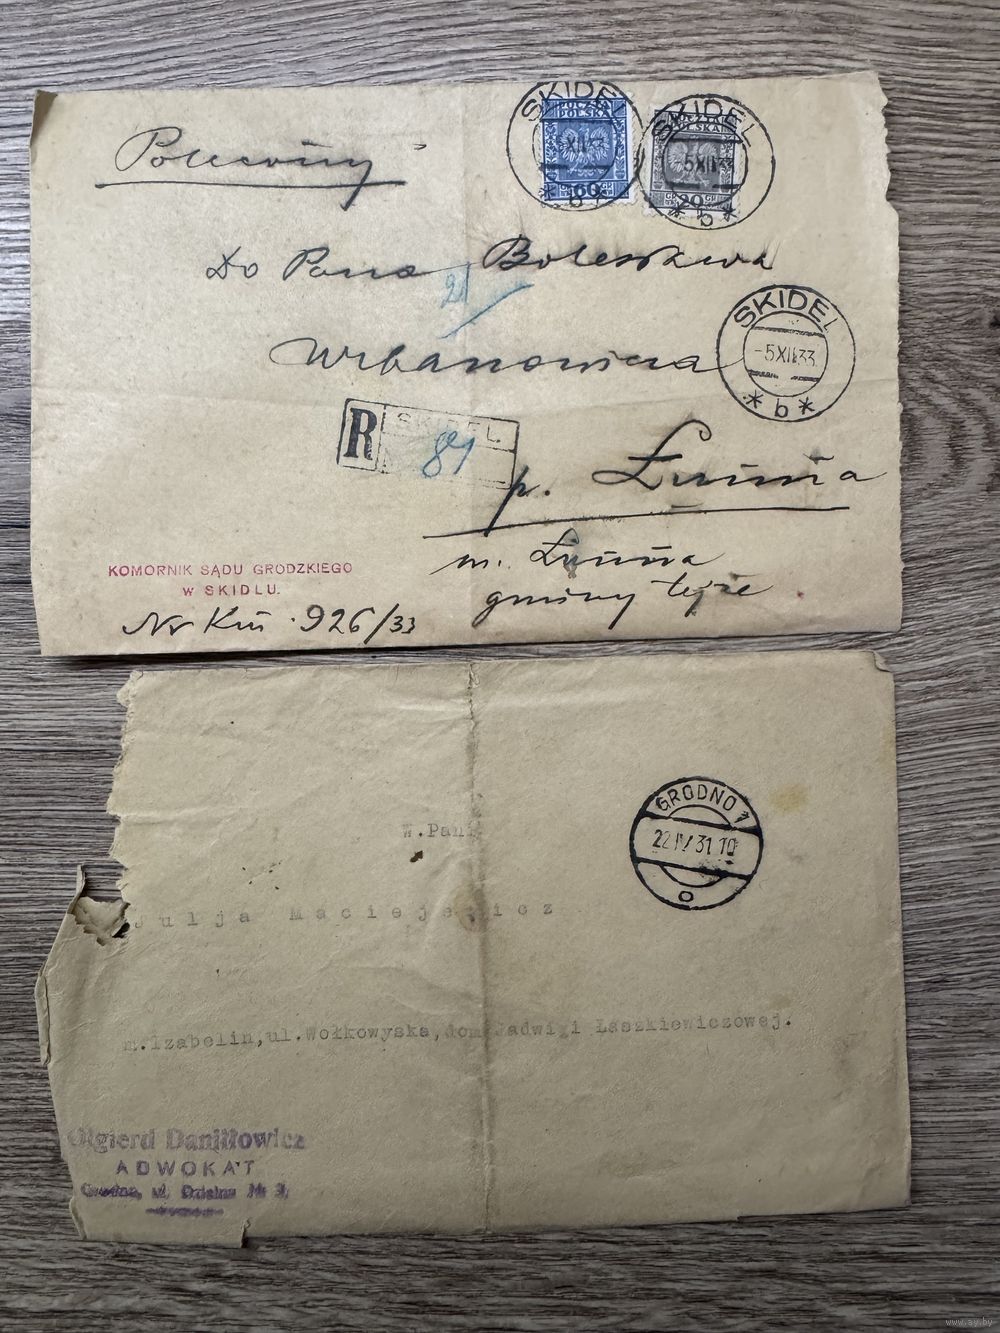 Polecony
SKIDEL
POCZTA
POLSKA
XII 33
60
* b *
SKIDEL
POLSKA
-5 XII 33
20
* b *
Do Pana Bolesława
21
Urbanowicza
SKIDEL
-5 XII 33
* b *
R SKIDEL
81
p. Łunna
m. Łunna
gminy tejże
KOMORNIK SĄDU GRODZKIEGO
W SKIDLU.
Nr Km. 926/33
GRODNO 1
22 IV 31 10
o
W.Pani
Julja Maciejewicz
m.Izabelin,ul.Wołkowyska,dom Jadwigi Laszkiewiczowej.
Olgierd Daniłłowicz
ADWOKAT
Grodno, ul.
www.ay.by